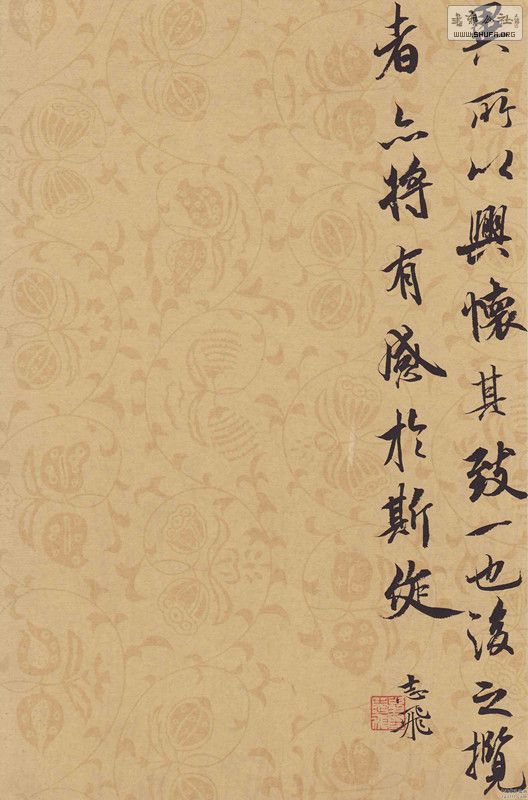 異所以興懷其致一也後之攬
者亦將有感於斯作
志飛
WWW.SHUFA.ORG